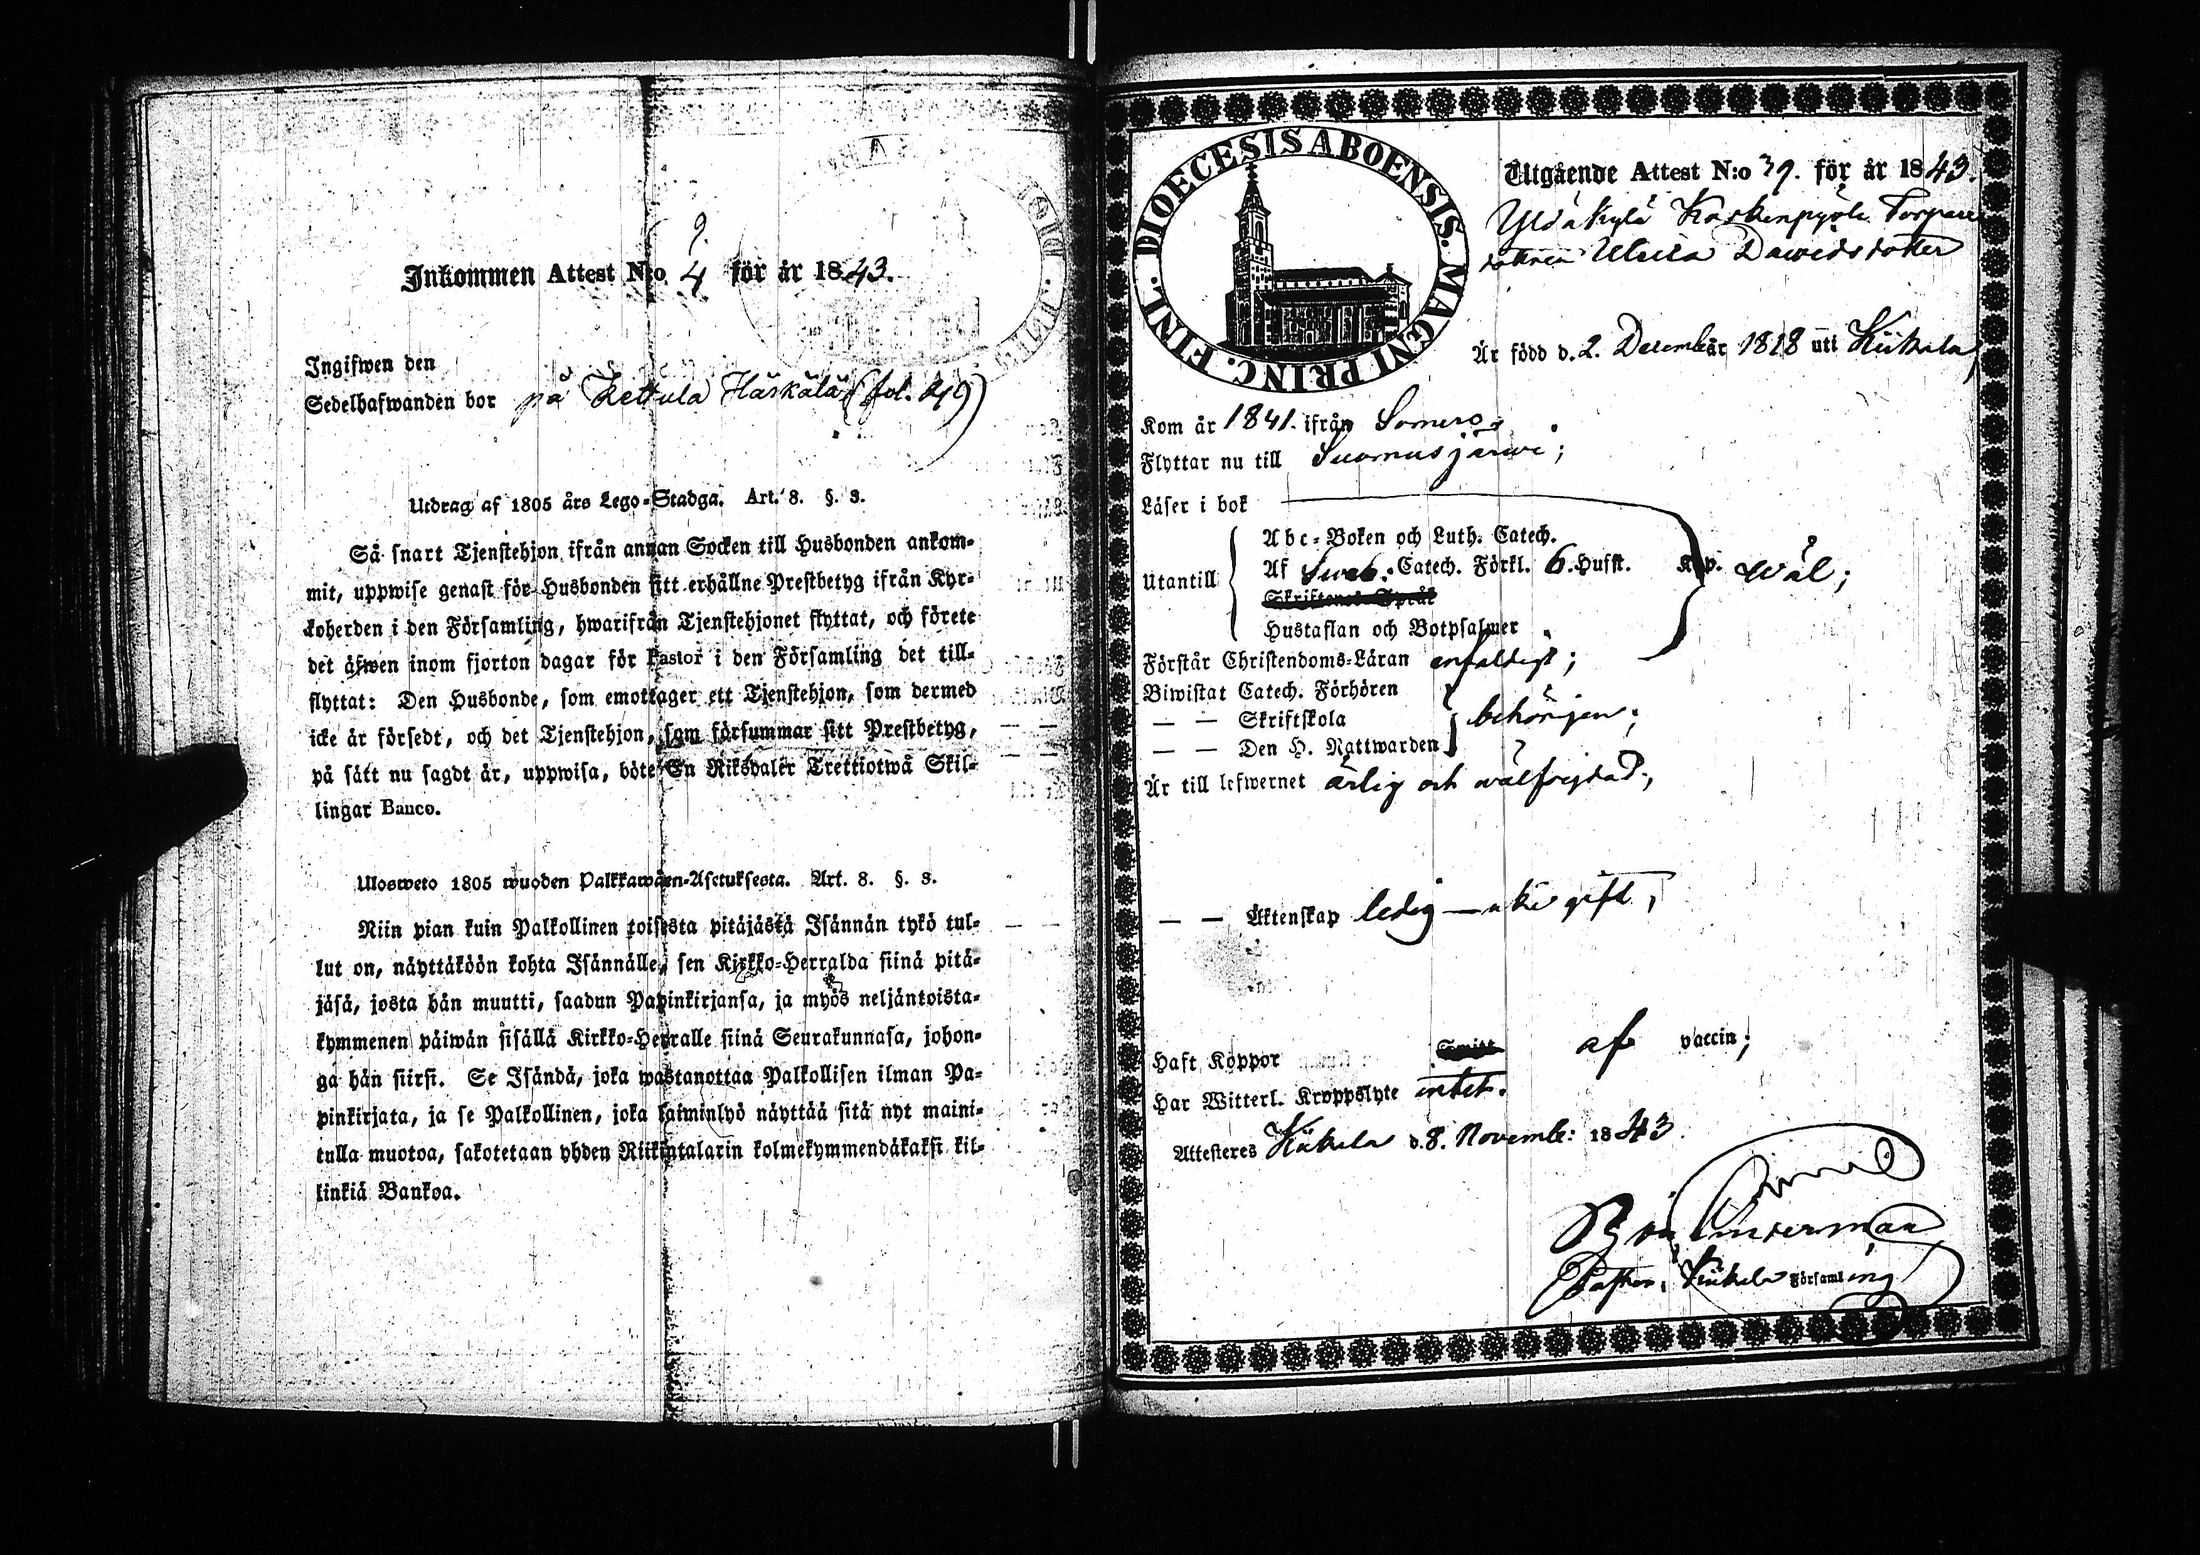 9.
Inkommen Attest N:o 4 för år 1843.
Ingifwen den
Sedelhafwanden bor på Kettula Häskälä (fol. 49)
Utdrag af 1805 års Lego-Stadga. Art. 8. §. 3.
Så snart Tjenstehjon ifrån annan Socken till Husbonden ankom-
mit, uppwise genast för Husbonden sitt erhållne Prestbetyg ifrån Kyr-
koherden i den Församling, hwarifrån Tjenstehjonet flyttat, och förete
det äfwen inom fjorton dagar för Pastor i den Församling det till-
flyttat: Den Husbonde, som emottager ett Tjenstehjon, som dermed
icke är försedt, och det Tjenstehjon, som försummar sitt Prestbetyg,
på sätt nu sagdt är, uppwisa, böte En Riksdaler Trettiotwå Skil-
lingar Banco.
Ulosweto 1805 wuoden Palkkawäen-Asetuksesta. Art. 8. §. 3.
Niin pian kuin Palkollinen toisesta pitäjästä Isännän tykö tul-
lut on, näyttäköön kohta Isännälle, sen Kirkko-Herralda siinä pitä-
jäsä, josta hän muutti, saadun Papinkirjansa, ja myös neljäntoista-
kymmenen päiwän sisällä Kirkko-Herralle siinä Seurakunnasa, johon-
ga hän siirsi. Se Isändä, joka wastanottaa Palkollisen ilman Pa-
pinkirjata, ja se Palkollinen, joka laiminlyö näyttää sitä nyt maini-
tulla muotoa, sakotetaan yhden Riikintalarin kolmekymmendäkaksi kil-
linkiä Bankoa.
DIOECESIS ABOENSIS. MAGNI PRINC. FINL.
Utgående Attest N:o 39. för år 1843.
Yldäkylä Torpare
dottren Ulrica Davidsdotter
Är född d. 2. December 1818 uti Kiikala,
Kom år 1841. ifrån Somero;
Flyttar nu till Suomusjärwi;
Läser i bok
Abc-Boken och Luth. Catech.
Utantill Af Sweb. Catech. Förkl. 6. Hufst. Kap. wäl;
Skriftenes Språk
Hustaflan och Botpsalmer
Förstår Christendoms-Läran enfaldigt;
Biwistat Catech. Förhören
— — Skriftskola behörigen;
— — Den H. Nattwarden
Är till lefwernet ärlig och wälfrejdad;
— — Äktenskap ledig — gift,
Haft Koppor af vaccin;
Har Witterl. Kroppslyte intet.
Attesteres Kiikala d. 8. Novemb: 1843.
Pastor i Kiikala Församling